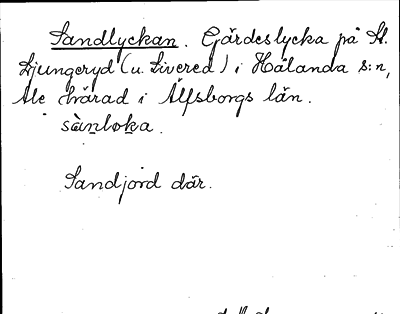 Sandlyckan. Gärdeslycka på St.
Ljungeryd (u. Livered) i Hålanda s:n,
Ale härad i Älfsborgs län.
sànloka.
Sandjord där.